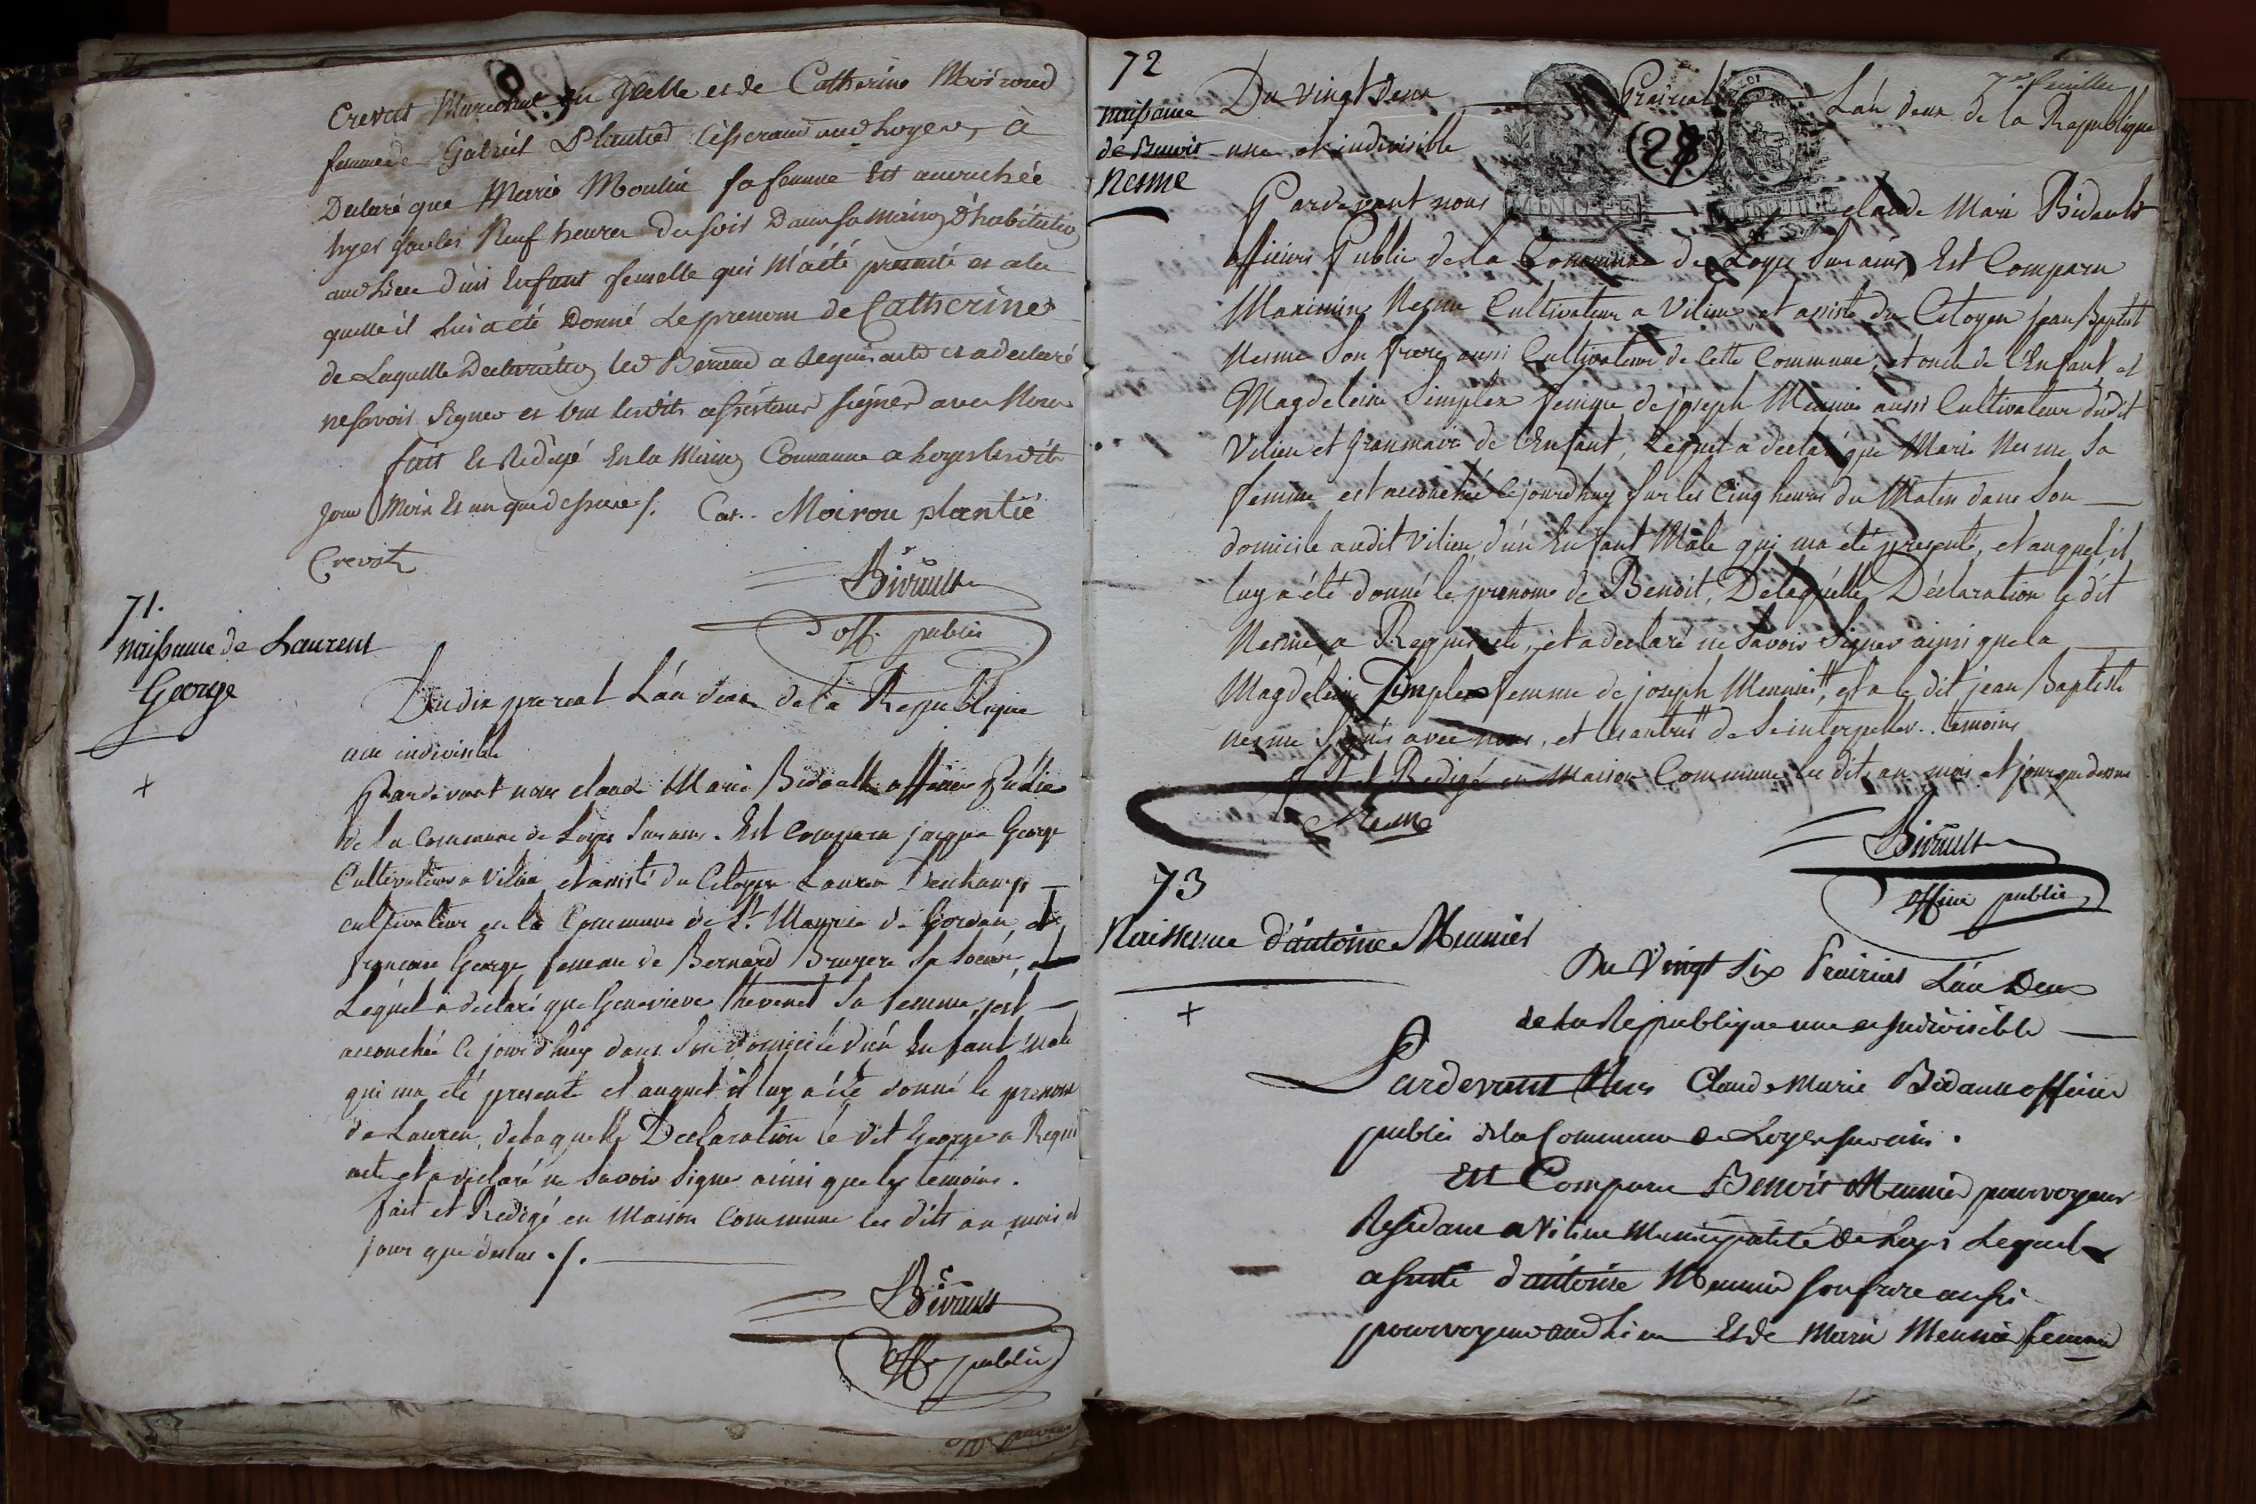 Crevat Marechal et de Catherine Moiroud
femme de Gabriel Plantied audhoyer, à
Declaré que Marie Moulin sa femme Est accouchée
hyer sur les Neuf heures du soir Dans sa maison d'habitation
aud lieu d'un Enfant femelle qui m'a été presenté et a la
quelle il lui a été Donné Le prenom de Catherine
de Laquelle Declaration led a Requis acte et a declaré
ne savoir Signer et ont lesdits assistans signer avec Nous
fait Et Redigé En la Maison Commune a Loyes lesdits
jour Mois Et an que dessus ./. Cat.. Moirou plantié
Crevat
Bidault
off. public
71.
naissance de Laurent
George
+
Du dix prereal L'an deux de la Republique
une indivisible
Pardevant nous claude Marie Bidault officier Public
de la Commune de Loyes sur ains. Est Comparu jacque George
Cultivateur a Vilieu et assisté du Citoyen Lauren Deschamps
cultivateur en la Commune de St. Maurice de Gordan, et
françoise George femme de Bernard Bruyere Sa Soeur, et
Lequel a déclaré que Genevieve thevenet Sa femme, est
accouchée Ce jourd'huy dans Son domicile d'un Enfant Male
qui ma eté presenté et auquel il luy a été donné le prenom
de Lauren, de laquelle Declaration le dit George a Requi
acte et a declaré ne Savoir Signer ainsi que les temoins.
fait et Redigé en Maison Commune les dits an, mois et
jour que dessus ./.
Bidault
Off. public
72
naissance
de Benoit
Nesme
7me feuillet
Du vingt Deux Prairial L'an deux de la Republique
une et indivisible
28
Pardevant nous claude Marie Bidault
officier Public de la Commune de Loyes Sur ains, Est Comparu
Maximin Nesme Cultivateur a Vilieu et assisté du Citoyen Jean Baptist
Nesme Son frere aussi Cultivateur de Cette Commune, et oncle de l'Enfant, et
Magdeleine Simplex femme de joseph Meunier aussi Cultivateur dudit
Vilieu et Granmaire de l'Enfant, Lequel a declaré que Marie Nesme Sa
femme est accouchée Cejourdhuy Sur les Cinq heures du Matin dans Son
domicile audit Vilieu d'un Enfant Mâle qui ma été presenté, et auquel il
luy a été donné le prenom de Benoit, De laquelle Déclaration le dit
Nesme a Requis acte, et a declaré ne Savoir Signer ainsi que la
Magdeleine Simplex femme de joseph Meunier, et a le dit jean Baptiste
nesme Signés avec nous, et de Se interpeller.. temoins
fait et Redigé en Maison Commune les dits an mois et jour que dessus
Nesme
Bidault
officier public
73
Naissance d'antoine Meunier
+
Du Vingt Six Prairial L'an Deux
de la Republique une et Indivisible
Pardevant Nous Claude Marie Bidault officier
public de la Commune de Loyes sur ains.
Est Comparu Benoit Meunier pourvoyeur
Residant a Vilieu Municipalité de Loyes Lequel
assisté d'antoine Meunier son frere aussi
pourvoyeur aud lieu Et de Marie Meunier femme